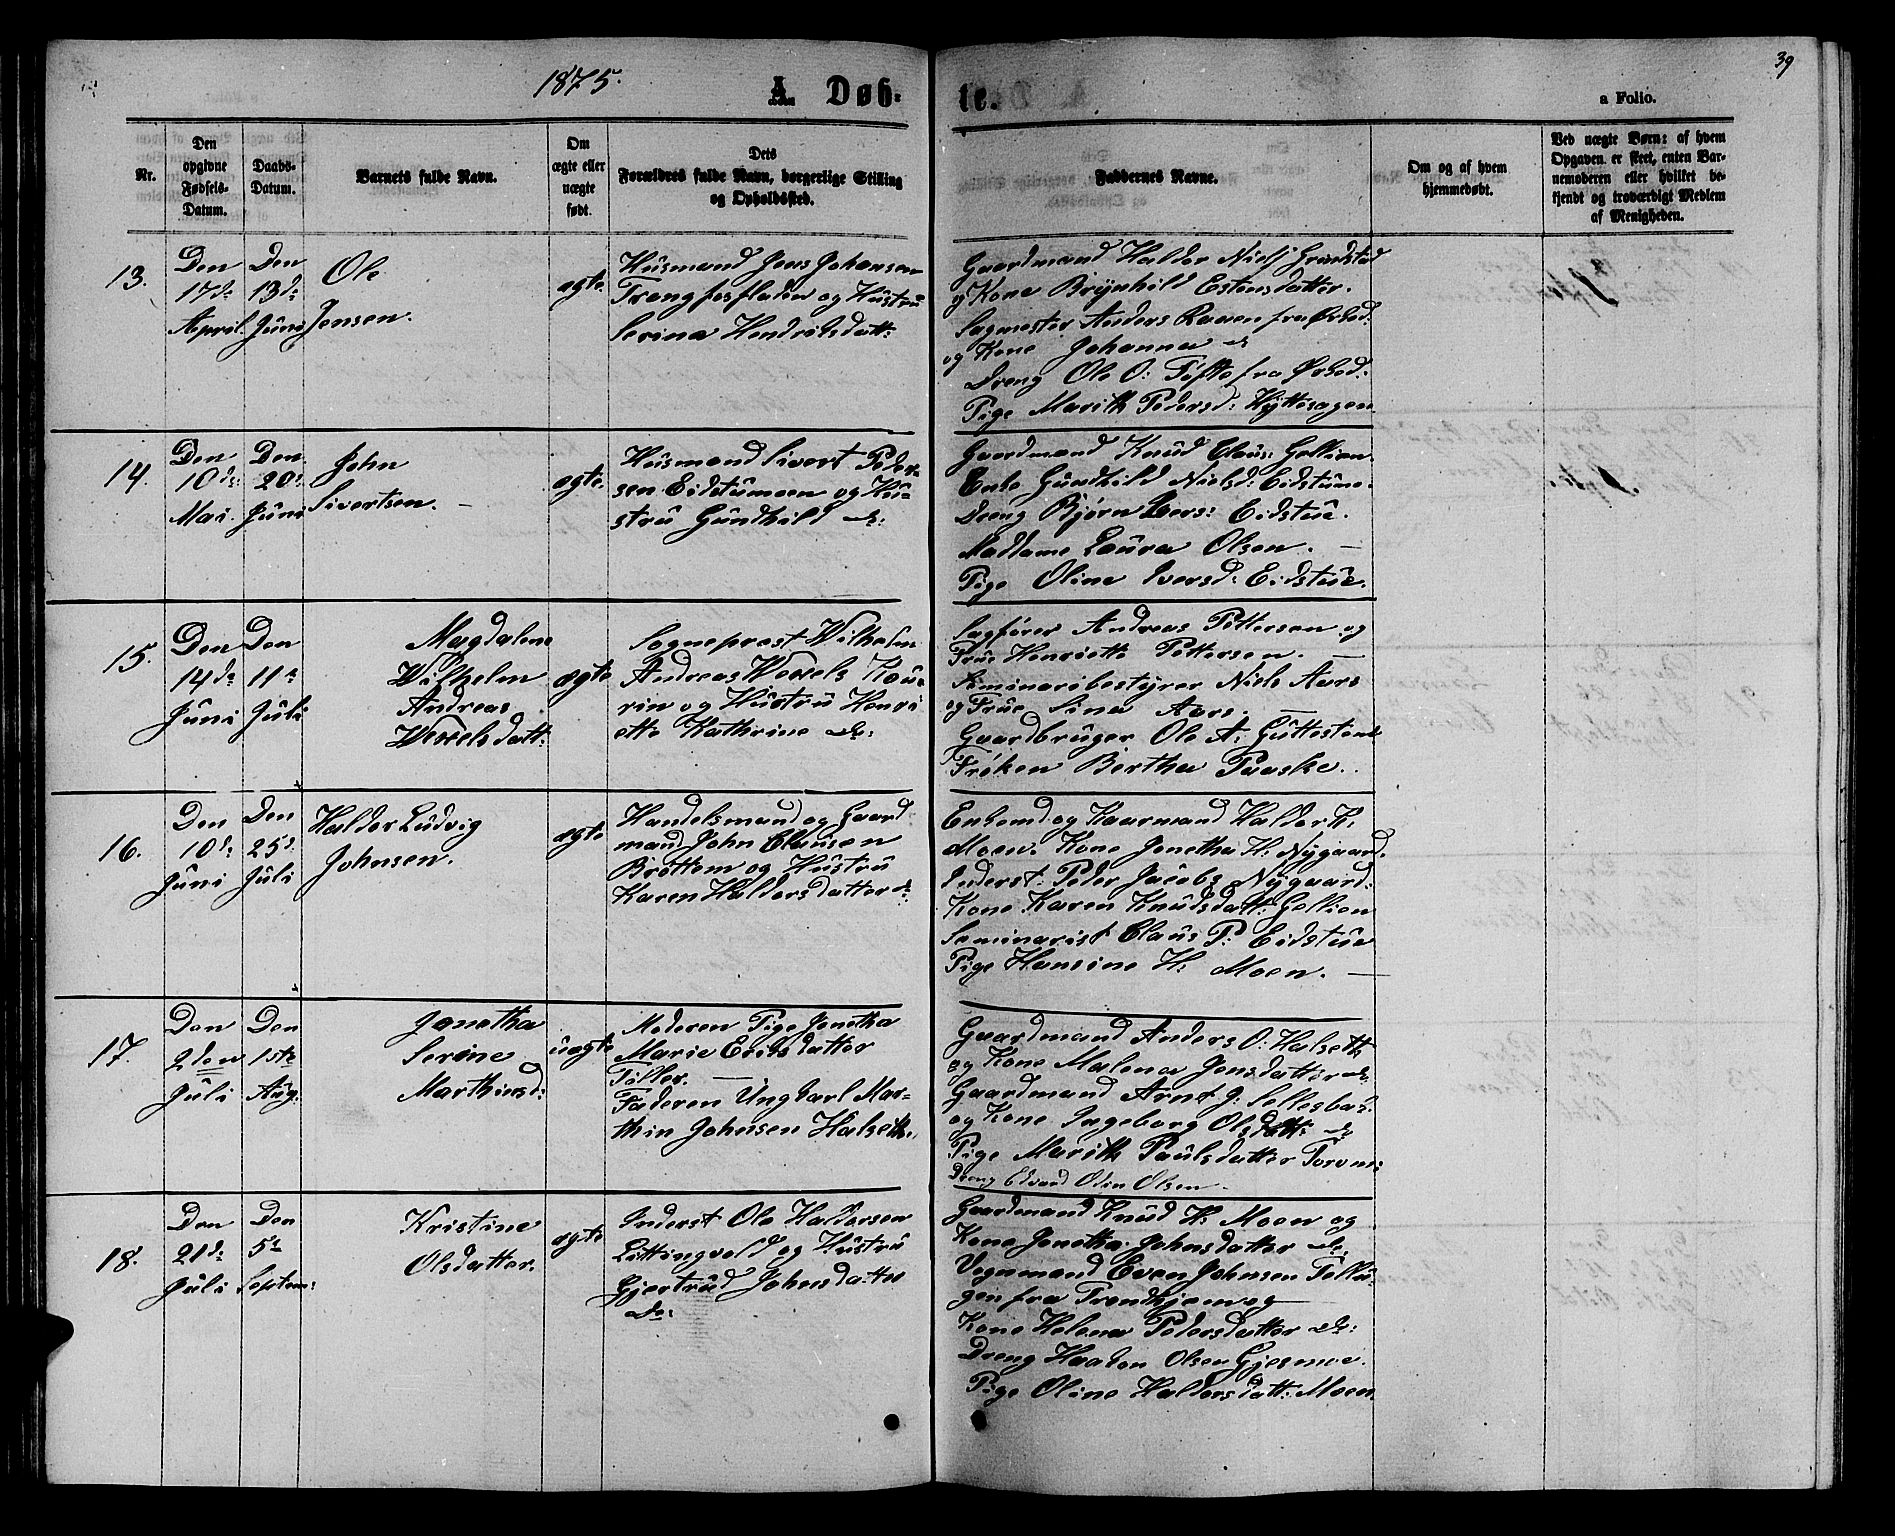 1875.
A. Døb-
te.
39
a Folio.
Nr.
Den
opgivne
Fødsels-
Datum.
Daabs-
Datum.
Barnets fulde Navn.
Om
ægte eller
uægte
født.
Dets
Forældres fulde Navn, borgerlige Stilling
og Opholdssted.
Faddernes Navne.
Om og af hvem
hjemmedøbt.
Ved uægte Børn: af hvem
Opgaven er skeet, enten Bar-
nemoderen eller hvilket be-
kjendt og troværdigt Medlem
af Menigheden.
13.
Den
17de
April.
Den
13de
Juni
Ole
Jensen.
ægte.
Husmand Jens Johansen
Trangfosflaten og Hustru
Serina Hendriksdatt:
Gaardmand Haldor Niels
og Kone Brynhild Estensdatter.
Sagmester Anders Raaen fra
og Kone Johanna do
Dreng Ole O: Tøfte fra
Pige Marith Pedersd: Hyttesagen
14.
Den
10de
Mai.
Den
20de
Juni
John
Sivertsen.
ægte.
Husmand Sivert Peder-
sen Eidstumoen og Hu-
stru Gundhild do:
Gaardmand Knud Claus: Gellien
Enke Gundhild Nielsd: Eidstumo.
Dreng Bjørn Ivers: Eidstue.
Maddame Laura Olsen.
Pige Oline Iversd: Eidstue.
15.
Den
14de
Juni
Den
11te
Juli
Magdalene
Wilhelm
Andreas
Wexelsdatt:
ægte
Sogneprest Wilhelm
Andreas Wexels Kau-
rin og Hustru Henri
ette Kathrine do:
Sagfører Andreas Pettersen og
Frue Henriette Pettersen.
Seminaribestyrer Niels Aars
og Frue Sina Aars.
Gaardbruger Ole A:
Frøken Bertha Paaske.
16.
Den
10de
Juni
Den
25de
Juli
Haldor Ludvig
Johnsen.
ægte
Handelsmand og Gaard
mand John Clausen
Brøttem og Hustru
Karen Haldorsdatter do
Enkemd og Kaarmand Haldor K:
Moen. Kone Jonetha H: Nygaard.
Inderst. Peder Jacobs Nygaard:
Kone Karen Knudsdatt: Gellien
Seminarist Claus P: Eidstue
Pige Hansine H: Moen.
17.
Den
2den
Juli
Den
1ste
Aug:
Jonetha
Serine
Marthinsd:
uægte
Moderen Pige Jonetha
Marie Eriksdatter
Tøller.
Faderen Ungkarl Mar-
thin Johnsen Halseth.
Gaardmand Anders O: Halseth
og Kone Malena Jensdatter do:
Gaardmand Arnt J: Sellesbak
og Kone Ingeborg Olsdatt: do
Pige Marith Paulsdatter
Dreng Edvard Odin Olsen.
18.
Den
21de
Juli
Den
5te
Septem:
Kristine
Olsdatter.
ægte
Inderst Ole Haldorsen
Littingvold og Hustru
Gjertrud Johnsdatter
do:
Gaardmand Knud H: Moen og
Kone Jonetha Johnsdatter do:
Vognmand Even Johnsen Tellu-
gen fra Trondhjem og
Kone Helena Pedersdatter do:
Dreng Haakon Olsen Gjesmoe.
Pige Oline Haldorsdatt: Moen